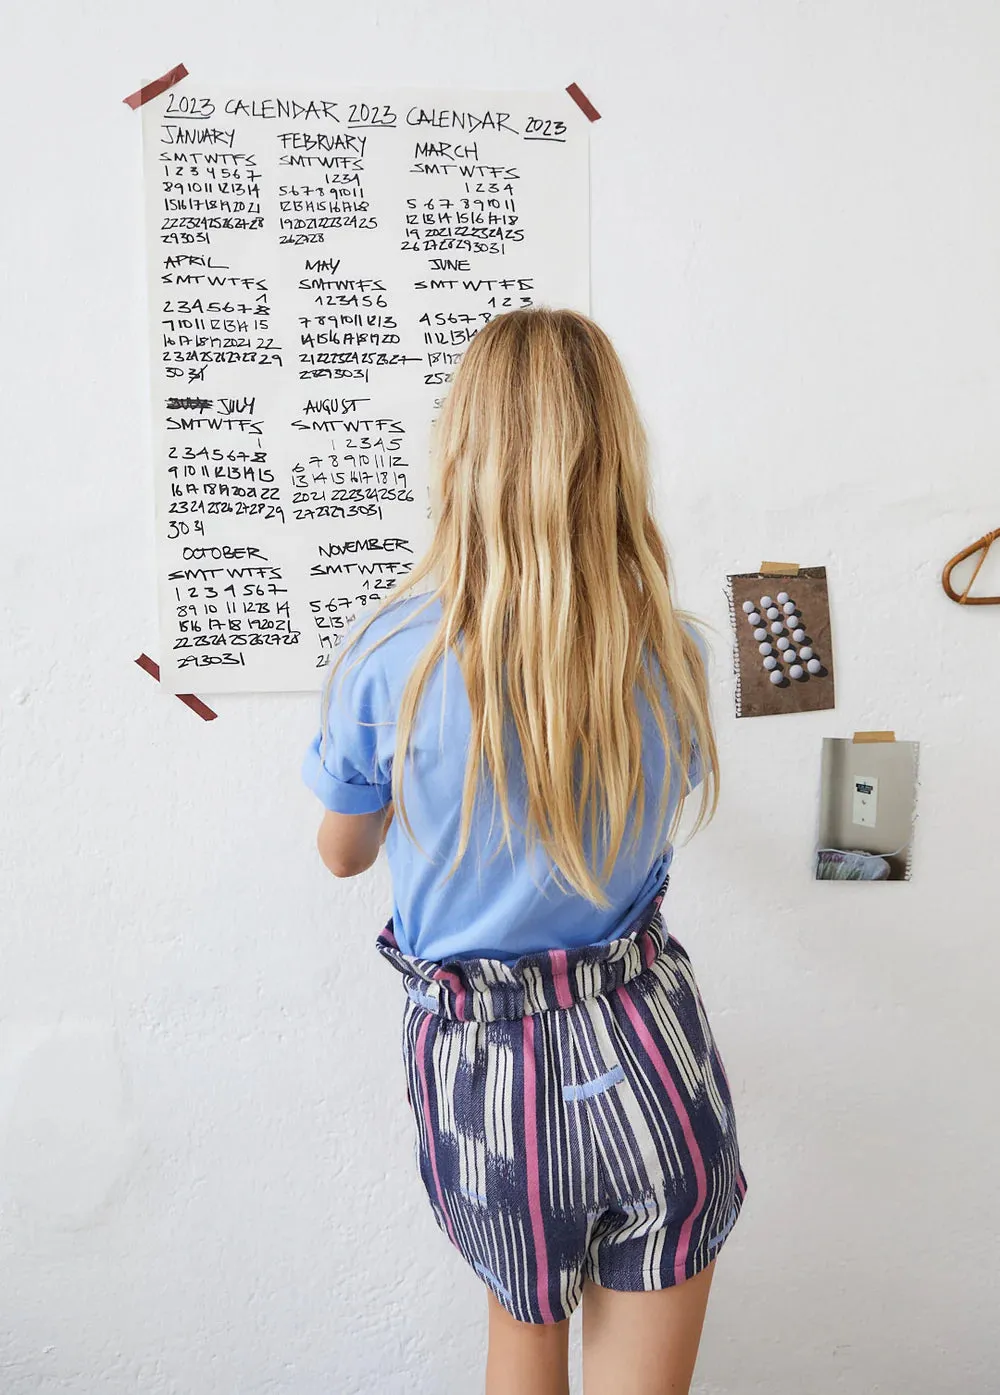 2023 CALENDAR 2023 CALENDAR 2023
JANUARY
SMTWTFS
1 2 3 4 5 6 7
8 9 10 11 12 13 14
15 16 17 18 19 20 21
22 23 24 25 26 27 28
29 30 31
FEBRUARY
SMTWTFS
1 2 3 4
5 6 7 8 9 10 11
12 13 14 15 16 17 18
19 20 21 22 23 24 25
26 27 28
MARCH
SMTWTFS
1 2 3 4
5 6 7 8 9 10 11
12 13 14 15 16 17 18
19 20 21 22 23 24 25
26 27 28 29 30 31
APRIL
SMTWTFS
1
2 3 4 5 6 7 8
9 10 11 12 13 14 15
16 17 18 19 20 21 22
23 24 25 26 27 28 29
30
MAY
SMTWTFS
1 2 3 4 5 6
7 8 9 10 11 12 13
14 15 16 17 18 19 20
21 22 23 24 25 26 27
28 29 30 31
JUNE
SMTWTFS
1 2 3
4 5 6 7 8
11 12 13
18 19
25
JULY
SMTWTFS
1
2 3 4 5 6 7 8
9 10 11 12 13 14 15
16 17 18 19 20 21 22
23 24 25 26 27 28 29
30 31
AUGUST
SMTWTFS
1 2 3 4 5
6 7 8 9 10 11 12
13 14 15 16 17 18 19
20 21 22 23 24 25 26
27 28 29 30 31
OCTOBER
SMTWTFS
1 2 3 4 5 6 7
8 9 10 11 12 13 14
15 16 17 18 19 20 21
22 23 24 25 26 27 28
29 30 31
NOVEMBER
SMTWTFS
1 2 3
5 6 7 8 9
12 13
19